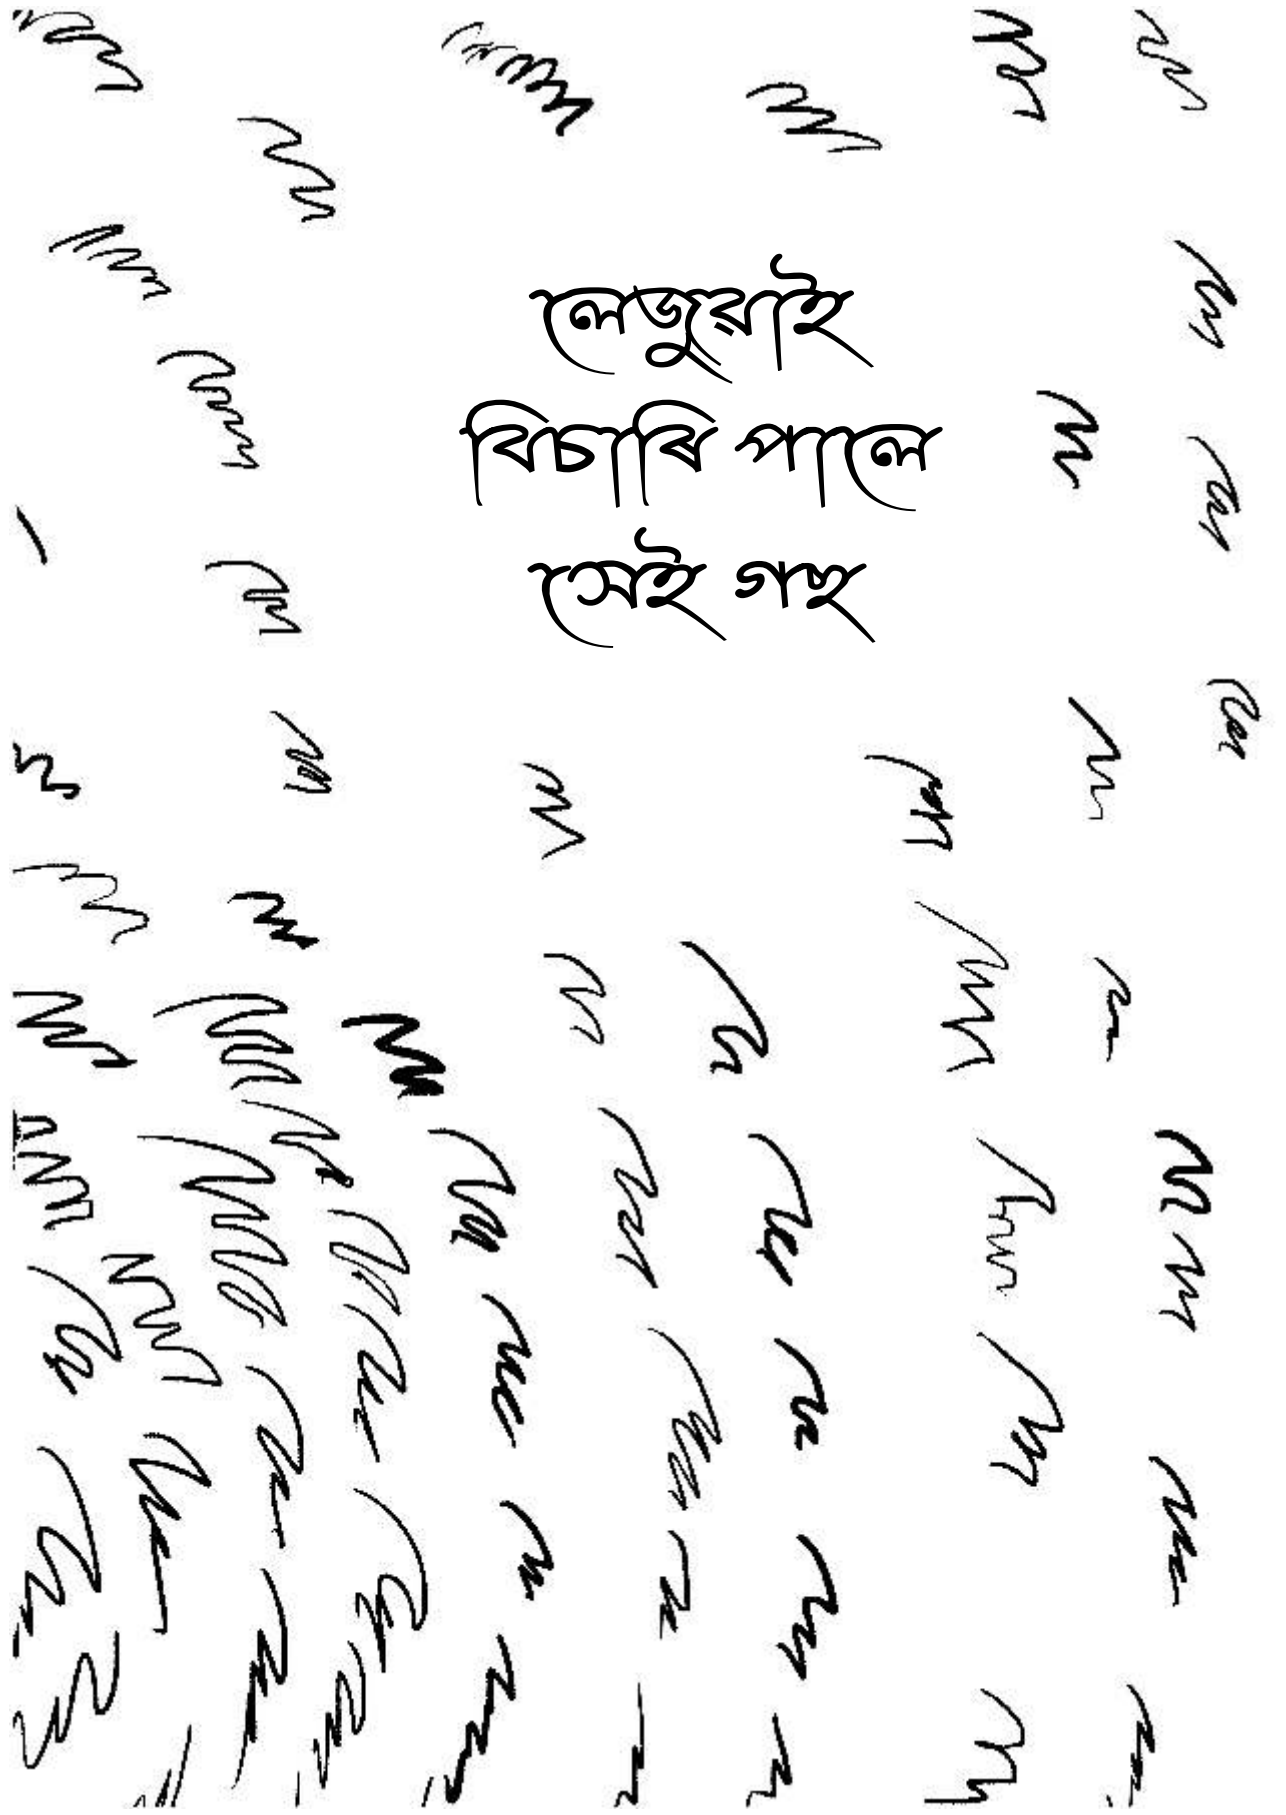 লেজুৱাই
বিচাৰি পালে
সেই গছ